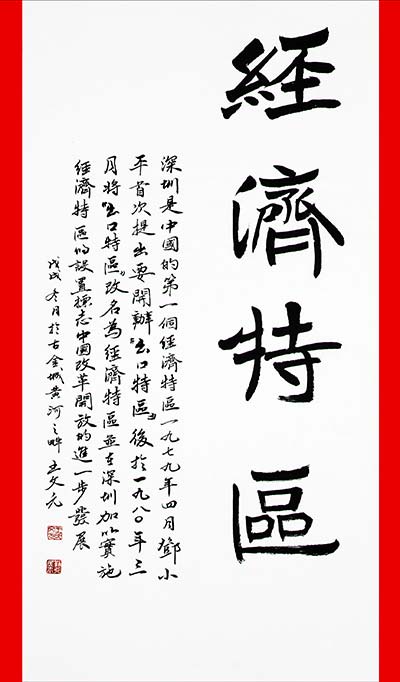 經濟特區
深圳是中國的第一個經濟特區一九七九年四月鄧小
平首次提出要開辦“出口特區”後於一九八〇年三
月將“出口特區”改名為經濟特區並在深圳加以實施
經濟特區的設置標志中國改革開放的進一步發展
戊戌冬月於古金城黄河之畔 王文元